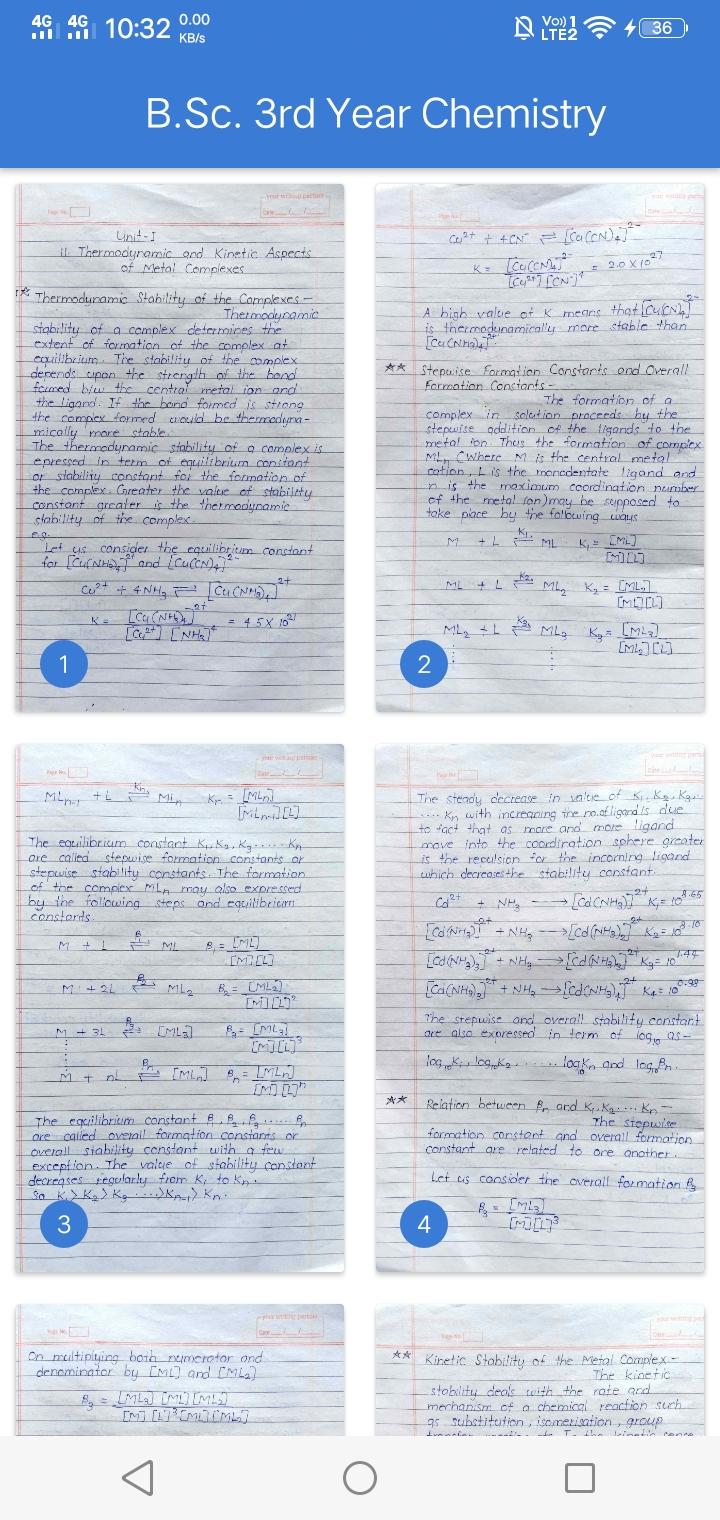 4G 4G 10:32 0.00 KB/s
Vo)) 1 LTE2 36
B.Sc. 3rd Year Chemistry
your writing partner
Page No.
Date / /
Unit-I
II. Thermodynamic and Kinetic Aspects
of Metal Complexes
** Thermodynamic Stability of the Complexes –
Thermodynamic
stability of a complex determines the
extent of formation of the complex at
equilibrium. The stability of the complex
depends upon the strength of the bond
formed b/w the central metal ion and
the ligand. If the bond formed is strong
the complex formed would be thermodyna-
mically more stable.
The thermodynamic stability of a complex is
epressed in term of equilibrium constant
or stability constant for the formation of
the complex. Greater the value of stability
constant greater is the thermodynamic
stability of the complex.
e.g.
Let us consider the equilibrium constant
for [Cu(NH₃)₄]²⁺ and [Cu(CN)₄]²⁻
Cu²⁺ + 4NH₃ ⇌ [Cu(NH₃)₄]²⁺
K = [Cu(NH₃)₄]²⁺ / [Cu²⁺] [NH₃]⁴ = 4.5 X 10²¹
1
Page No.
Cu²⁺ + 4CN⁻ ⇌ [Cu(CN)₄]²⁻
K = [Cu(CN)₄]²⁻ / [Cu²⁺] [CN⁻]⁴ = 2.0 X 10²⁷
A high value of K means that [Cu(CN)₄]²⁻
is thermodynamically more stable than
[Cu(NH₃)₄]²⁺
** Stepwise Formation Constants and Overall
Formation Constants –
The formation of a
complex in solution proceeds by the
stepwise addition of the ligands to the
metal ion. Thus the formation of complex
MLn (Where M is the central metal
cation, L is the monodentate ligand and
n is the maximum coordination number
of the metal ion) may be supposed to
take place by the following ways
M + L ⇌ K₁ ML K₁ = [ML] / [M][L]
ML + L ⇌ K₂ ML₂ K₂ = [ML₂] / [ML][L]
ML₂ + L ⇌ K₃ ML₃ K₃ = [ML₃] / [ML₂][L]
2
your writing partner
Page No.
Date / /
MLn-1 + L ⇌ Kn MLn Kn = [MLn] / [MLn-1][L]
The equilibrium constant K₁, K₂, K₃ ...... Kn
are called stepwise formation constants or
stepwise stability constants. The formation
of the complex MLn may also expressed
by the following steps and equilibrium
constants.
M + L ⇌ β₁ ML β₁ = [ML] / [M][L]
M + 2L ⇌ β₂ ML₂ β₂ = [ML₂] / [M][L]²
M + 3L ⇌ β₃ [ML₃] β₃ = [ML₃] / [M][L]³
M + nL ⇌ βn [MLn] βn = [MLn] / [M][L]ⁿ
The equilibrium constant β₁, β₂, β₃ ...... βn
are called overall formation constants or
overall stability constant with a few
exception. The value of stability constant
decreases regularly from K₁ to Kn.
So K₁ > K₂ > K₃ ....> Kn-1 > Kn.
3
Page No.
The steady decrease in value of K₁, K₂, K₃...
.... Kn with increaning the no.of ligand is due
to fact that as more and more ligand
move into the coordination sphere greater
is the repulsion for the incoming ligand
which decreases the stability constant.
Cd²⁺ + NH₃ → [Cd(NH₃)]²⁺ K₁ = 10
[Cd(NH₃)]²⁺ + NH₃ → [Cd(NH₃)₂]²⁺ K₂ = 10
[Cd(NH₃)₂]²⁺ + NH₃ → [Cd(NH₃)₃]²⁺ K₃ = 10¹·⁴⁴
[Cd(NH₃)₃]²⁺ + NH₃ → [Cd(NH₃)₄]²⁺ K₄ = 10⁰·⁹³
The stepwise and overall stability constant
are also expressed in term of log₁₀ as–
log₁₀K₁, log₁₀K₂ ........ log₁₀Kn and log₁₀βn.
** Relation between βn and K₁, K₂.... Kn –
The stepwise
formation constant and overall formation
constant are related to one another.
Let us consider the overall formation β₃
β₃ = [ML₃] / [M][L]³
4
your writing partner
Page No.
Date / /
On multiplying both numerator and
denominator by [ML] and [ML₂]
β₃ = [ML₃] [ML] [ML₂] / [M] [L]³ [ML] [ML₂]
Page No.
** Kinetic Stability of the Metal Complex –
The kinetic
stability deals with the rate and
mechanism of a chemical reaction such
as substitution, isomerisation, group